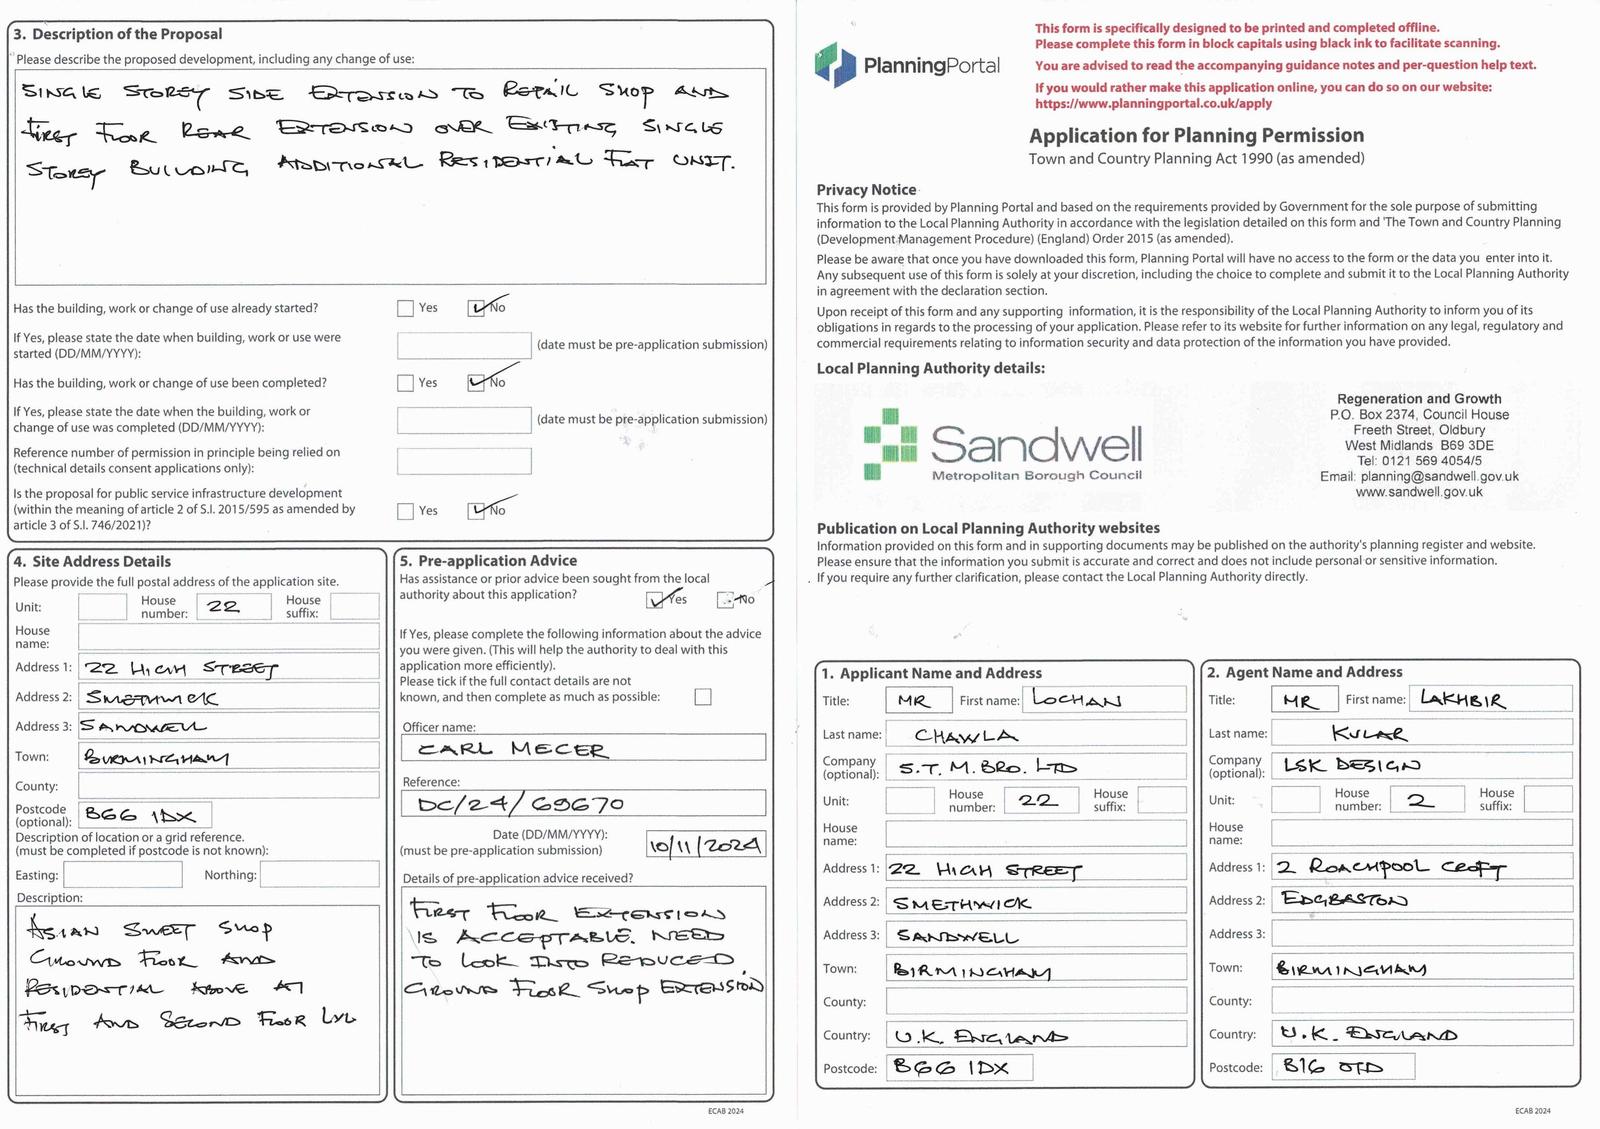 3. Description of the Proposal
Please describe the proposed development, including any change of use:
SINGLE STOREY SIDE EXTENSION TO REPAIR SHOP AND
FIRST FLOOR REAR EXTENSION OVER EXISTING SINGLE
STOREY BUILDING ADDITIONAL RESIDENTIAL FLAT UNIT.
Has the building, work or change of use already started? Yes No
If Yes, please state the date when building, work or use were
started (DD/MM/YYYY): (date must be pre-application submission)
Has the building, work or change of use been completed? Yes No
If Yes, please state the date when the building, work or
change of use was completed (DD/MM/YYYY): (date must be pre-application submission)
Reference number of permission in principle being relied on
(technical details consent applications only):
Is the proposal for public service infrastructure development
(within the meaning of article 2 of S.I. 2015/595 as amended by
article 3 of S.I. 746/2021)? Yes No
4. Site Address Details
Please provide the full postal address of the application site.
Unit: House number: 22 House suffix:
House name:
Address 1: 22 HIGH STREET
Address 2: SMETHWICK
Address 3: SANDWELL
Town: BIRMINGHAM
County:
Postcode (optional): B66 1DX
Description of location or a grid reference.
(must be completed if postcode is not known):
Easting: Northing:
Description:
ASIAN SWEET SHOP
GROUND FLOOR AND
RESIDENTIAL ABOVE AT
FIRST AND SECOND FLOOR LVL
5. Pre-application Advice
Has assistance or prior advice been sought from the local
authority about this application? Yes No
If Yes, please complete the following information about the advice
you were given. (This will help the authority to deal with this
application more efficiently).
Please tick if the full contact details are not
known, and then complete as much as possible:
Officer name:
CARL MECER
Reference:
DC/24/69670
Date (DD/MM/YYYY):
(must be pre-application submission) 10/11/2024
Details of pre-application advice received?
FIRST FLOOR EXTENSION
IS ACCEPTABLE. NEED
TO LOOK INTO REDUCED
GROUND FLOOR SHOP EXTENSION
ECAB 2024
PlanningPortal
This form is specifically designed to be printed and completed offline.
Please complete this form in block capitals using black ink to facilitate scanning.
You are advised to read the accompanying guidance notes and per-question help text.
If you would rather make this application online, you can do so on our website:
https://www.planningportal.co.uk/apply
Application for Planning Permission
Town and Country Planning Act 1990 (as amended)
Privacy Notice
This form is provided by Planning Portal and based on the requirements provided by Government for the sole purpose of submitting
information to the Local Planning Authority in accordance with the legislation detailed on this form and 'The Town and Country Planning
(Development Management Procedure) (England) Order 2015 (as amended).
Please be aware that once you have downloaded this form, Planning Portal will have no access to the form or the data you enter into it.
Any subsequent use of this form is solely at your discretion, including the choice to complete and submit it to the Local Planning Authority
in agreement with the declaration section.
Upon receipt of this form and any supporting information, it is the responsibility of the Local Planning Authority to inform you of its
obligations in regards to the processing of your application. Please refer to its website for further information on any legal, regulatory and
commercial requirements relating to information security and data protection of the information you have provided.
Local Planning Authority details:
Sandwell
Metropolitan Borough Council
Regeneration and Growth
P.O. Box 2374, Council House
Freeth Street, Oldbury
West Midlands B69 3DE
Tel: 0121 569 4054/5
Email: planning@sandwell.gov.uk
www.sandwell.gov.uk
Publication on Local Planning Authority websites
Information provided on this form and in supporting documents may be published on the authority's planning register and website.
Please ensure that the information you submit is accurate and correct and does not include personal or sensitive information.
If you require any further clarification, please contact the Local Planning Authority directly.
1. Applicant Name and Address
Title: MR First name: LOCHAN
Last name: CHAWLA
Company (optional): S.T.M.BRO. LTD
Unit: House number: 22 House suffix:
House name:
Address 1: 22 HIGH STREET
Address 2: SMETHWICK
Address 3: SANDWELL
Town: BIRMINGHAM
County:
Country: U.K. ENGLAND
Postcode: B66 1DX
2. Agent Name and Address
Title: MR First name: LAKHBIR
Last name: KULAR
Company (optional): LSK DESIGN
Unit: House number: 2 House suffix:
House name:
Address 1: 2 ROACHPOOL CROFT
Address 2: EDGBASTON
Address 3:
Town: BIRMINGHAM
County:
Country: U.K. ENGLAND
Postcode: B16 0TD
ECAB 2024